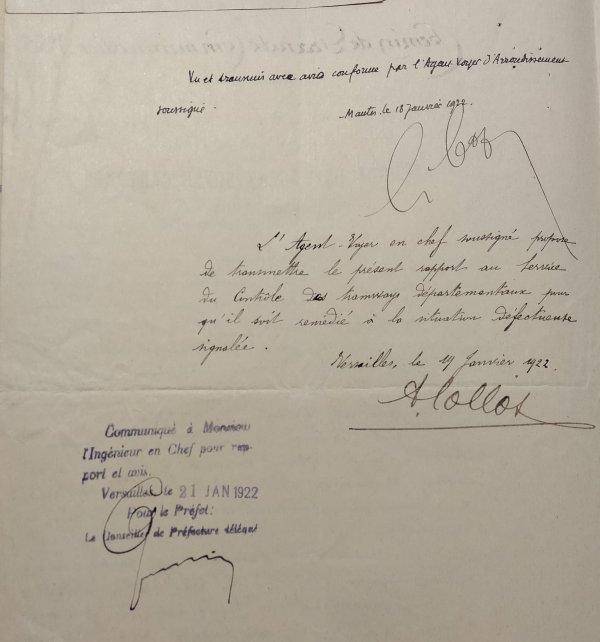 Vu et transmis avec avis conforme par l'Agent-Voyer d'Arrondissement
soussigné.
Mantes, le 18 Janvier 1922.
L'Agent-Voyer en chef soussigné propose
de transmettre le présent rapport au Service
du Contrôle des tramways départementaux pour
qu'il soit remédié à la situation défectueuse
signalée.
Versailles, le 19 Janvier 1922.
A. Collot
Communiqué à Monsieur
l'Ingénieur en Chef pour rap-
port et avis.
Versailles le 21 JAN 1922
Pour le Préfet:
Le Conseiller de Préfecture délégué